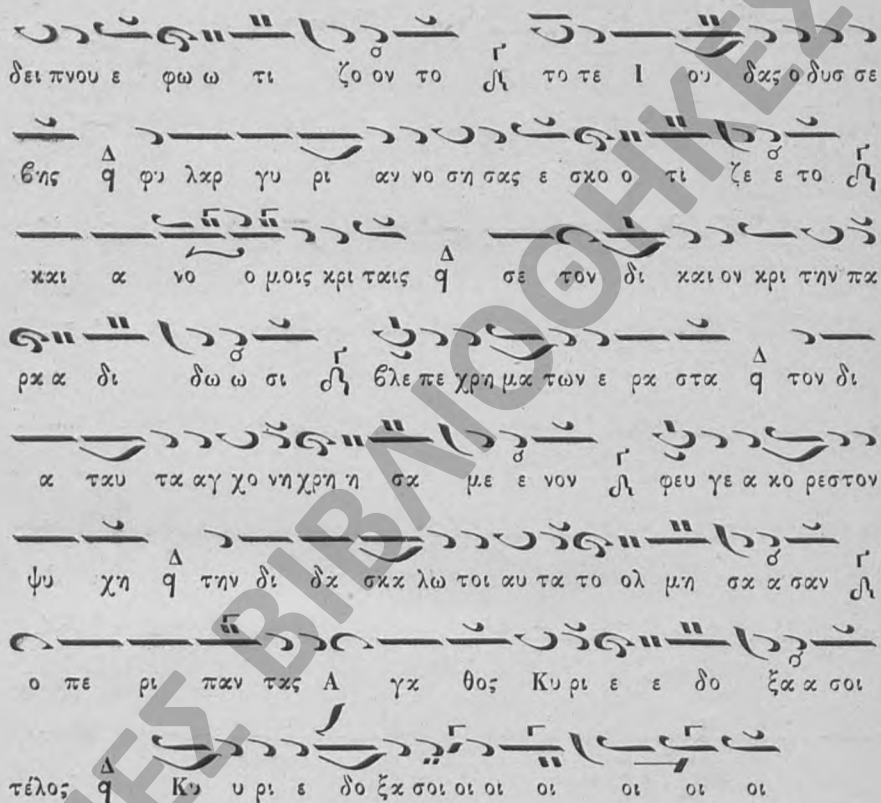 δει πνου ε φω ω τι ζο ον το Γ το τε Ι ου δας ο δυσ σε
βης Δ φι λαρ γυ ρι αν νο ση σας ε σκο ο τι ζε ε το Γ
και α νο ο μοις κρι ταις σε τον δι και ον κρι την πα
ρα α δι δω ω σι Γ βλε πε χρη μα των ε ρα στα Δ τον δι
α ταυ τα αγ χο νη χρη η σα με ε νον Γ φευ γε α κο ρεστον
ψυ χη Δ την δι δα σκα λω τοι αυ τα το ολ μη σα α σαν Γ
ο πε ρι παν τας Α γα θος Κυ ρι ε ε δο ξα α σοι
τέλος Δ Κυ υ ρι ε δο ξα σοι οι οι οι οι οι οι
ΗΕΣ ΒΙΒΛΙΟΘΗΚΕΣ